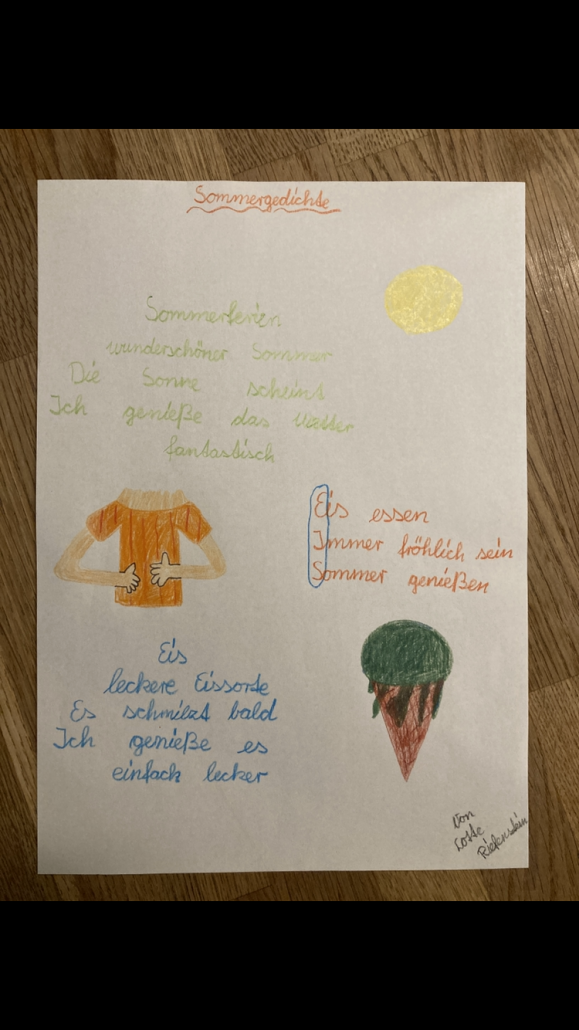 Sommergedichte
Sommerferien
wunderschöner Sommer
Die Sonne scheint
Ich genieße das Wetter
fantastisch
Eis essen
Immer fröhlich sein
Sommer genießen
Eis
leckere Eissorte
Es schmilzt bald
Ich genieße es
einfach lecker
von
Lotte